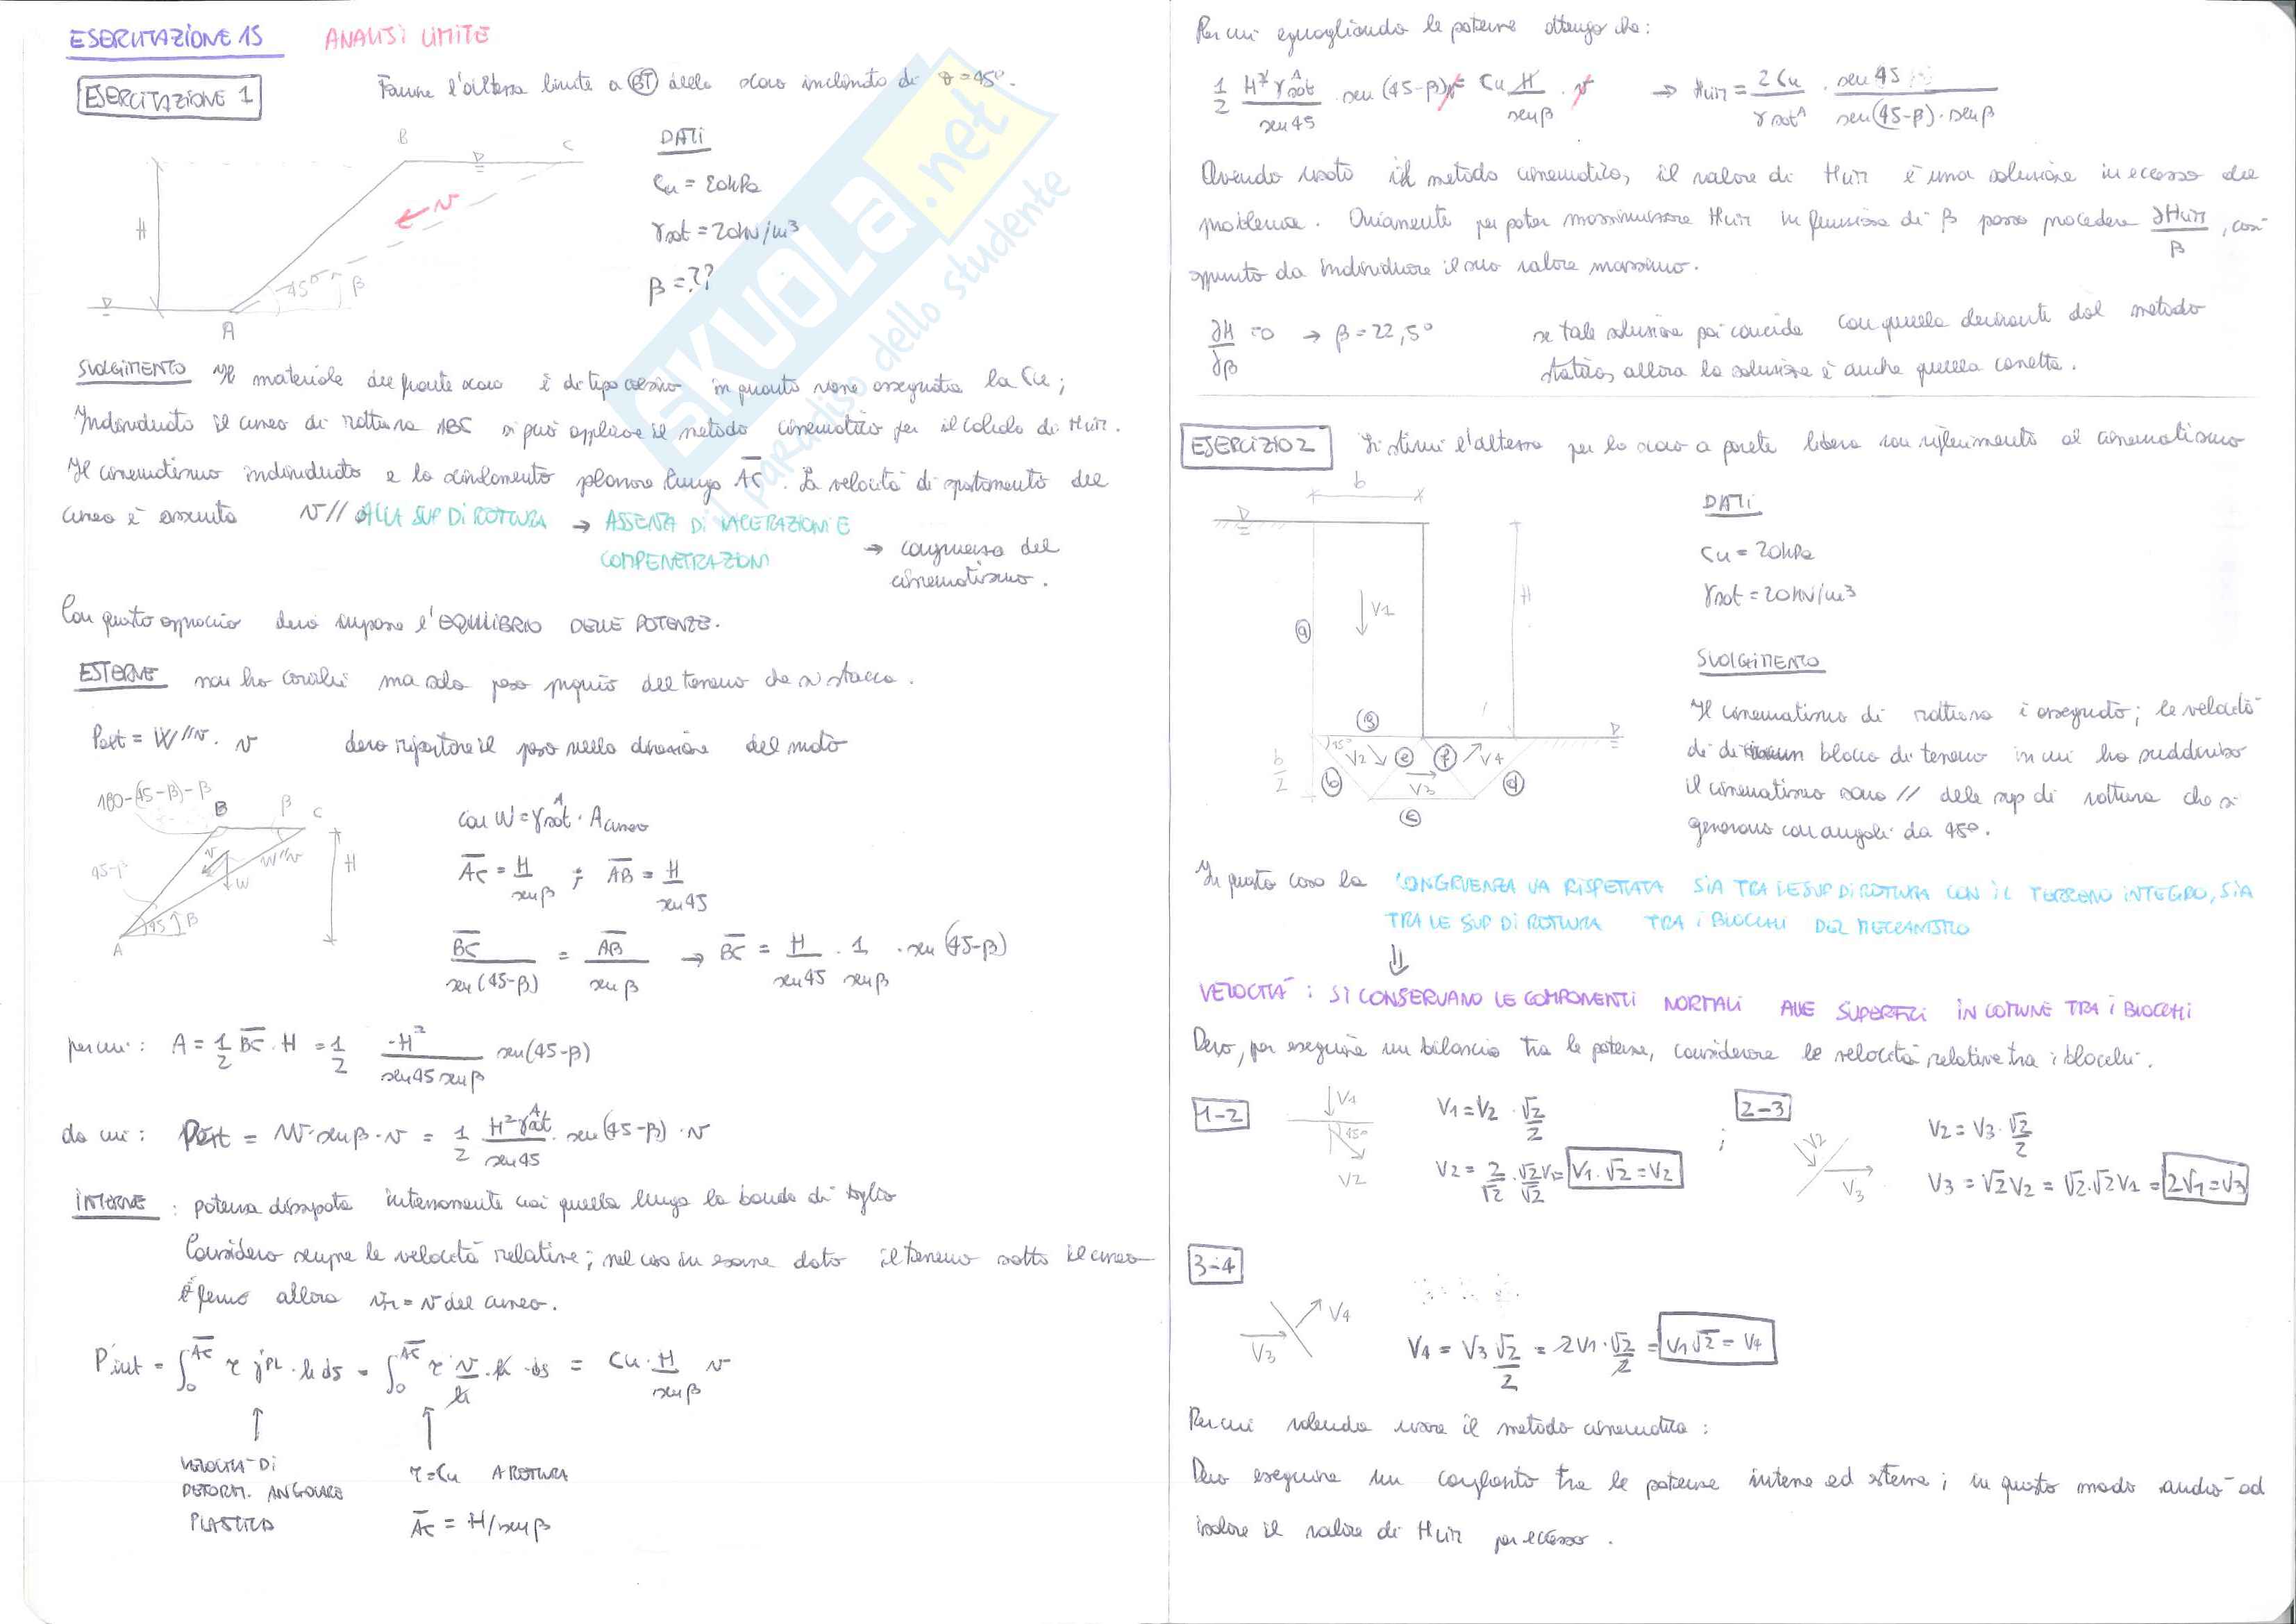 ESERCITAZIONE 15 ANALISI LIMITE
ESERCITAZIONE 1
Fornire l'altezza limite a BT dello scavo inclinato di = 45°.
DATI
Cu = 20kPa
γsat = 20kN/m³
β = ??
H
A
B
C
v
45°
β
SVOLGIMENTO Il materiale del fronte scavo è di tipo coesivo in quanto viene assegnata la Cu;
Individuato il cuneo di rottura ABC si può applicare il metodo cinematico per il calcolo di Hlim.
Il cinematismo individuato è lo scivolamento planare lungo AC. La velocità di spostamento del
cuneo è assunta v // ALLA SUP DI ROTTURA → ASSENZA DI LACERAZIONI E
COMPENETRAZIONI → congruenza del
cinematismo.
Con questo approccio devo imporre l'EQUILIBRIO DELLE POTENZE.
ESTERNE non ho carichi ma solo peso proprio del terreno che si stacca.
Pest = W//v · v devo riportare il peso nella direzione del moto
180-(45-β)-β
B β C
45-β
v W//v
W
H
A 45 β
con W = γsat · Acuneo
AC = H/senβ ; AB = H/sen45
BC/sen(45-β) = AB/senβ → BC = H/sen45 · 1/senβ · sen(45-β)
per cui: A = 1/2 BC · H = 1/2 H²/(sen45 senβ) sen(45-β)
da cui: Pest = W·senβ·v = 1/2 H²γsat/sen45 · sen(45-β) · v
INTERNE : potenza dissipata internamente cioè quella lungo la banda di taglio
Considero sempre le velocità relative; nel caso in esame dato il terreno sotto il cuneo
è fermo allora vr = v del cuneo.
Pint = ∫₀^AC τ γ̇PL · h ds = ∫₀^AC τ v/h · h · ds = Cu · H/senβ v
VELOCITÀ DI
DEFORM. ANGOLARE
PLASTICA
τ = Cu A ROTTURA
AC = H/senβ
Per cui eguagliando le potenze ottengo che:
1/2 H²γsat/sen45 · sen(45-β) v = Cu H/senβ · v → Hlim = 2Cu/γsat · sen45/(sen(45-β)·senβ)
Avendo usato il metodo cinematico, il valore di Hlim è una soluzione in eccesso del
problema. Ovviamente per poter massimizzare Hlim in funzione di β posso procedere ∂Hlim/β, così
appunto da individuare il suo valore massimo.
∂H/∂β = 0 → β = 22,5° se tale soluzione poi coincide con quella derivante dal metodo
statico, allora la soluzione è anche quella corretta.
ESERCIZIO 2 Si stimi l'altezza per lo scavo a parete libera con riferimento al cinematismo
b
DATI
Cu = 20kPa
γsat = 20kN/m³
SVOLGIMENTO
V1
H
a
g
45°
V2
e
f
V4
b/2
b
V3
d
c
Il cinematismo di rottura è assegnato; le velocità
di blocco di terreno in cui ho suddiviso
il cinematismo sono // delle sup di rottura che si
generano con angoli da 45°.
In questo caso la CONGRUENZA VA RISPETTATA SIA TRA LE SUP DI ROTTURA CON IL TERRENO INTEGRO, SIA
TRA LE SUP DI ROTTURA TRA I BLOCCHI DEL MECCANISMO
⇓
VELOCITÀ : SI CONSERVANO LE COMPONENTI NORMALI ALLE SUPERFICI IN COMUNE TRA I BLOCCHI
Devo, per eseguire un bilancio tra le potenze, considerare le velocità relative tra i blocchi.
1-2
V1
45°
V2
V1 = V2 · √2/2
V2 = 2/√2 · √2/√2 V1 = V1·√2 = V2 ;
2-3
V2
V3
V2 = V3 · √2/2
V3 = √2 V2 = √2·√2 V1 = 2V1 = V3
3-4
V4
V3
V4 = V3 √2/2 = 2V1 · √2/2 = V1√2 = V4
Per cui volendo usare il metodo cinematico :
Devo eseguire un confronto tra le potenze interne ed esterne ; in questo modo andrò ad
isolare il valore di Hlim per eccesso .
SKUOLA.net
il paradiso dello studente